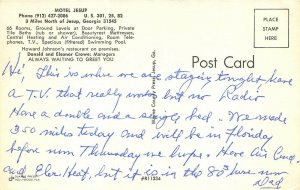 MOTEL JESUP
Phone (912) 427-2086 U. S. 301, 25, 82
3 Miles North of Jesup, Georgia 31545
66 Rooms, Ground Levels at Door Parking, Private
Tile Baths (tub or shower), Beautyrest Mattresses,
Central Heating and Air Conditioning, Room Tele-
phones, T.V., Spacious (filtered) Swimming Pool.
Howard Johnson's restaurant on premises.
Donald and Eleanor Crowe: Managers
ALWAYS WAITING TO GREET YOU
PLACE
STAMP
HERE
Post Card
Hi, This is where we are staying tonight, have
a T.V. that really works but no Radio
Have a double and a single bed. We made
350 miles today and will be in Florida
before noon Thursday we hope. Have Air Cond.
and Elec. Heat, but it is in the 80's here now
Dad
#R11204